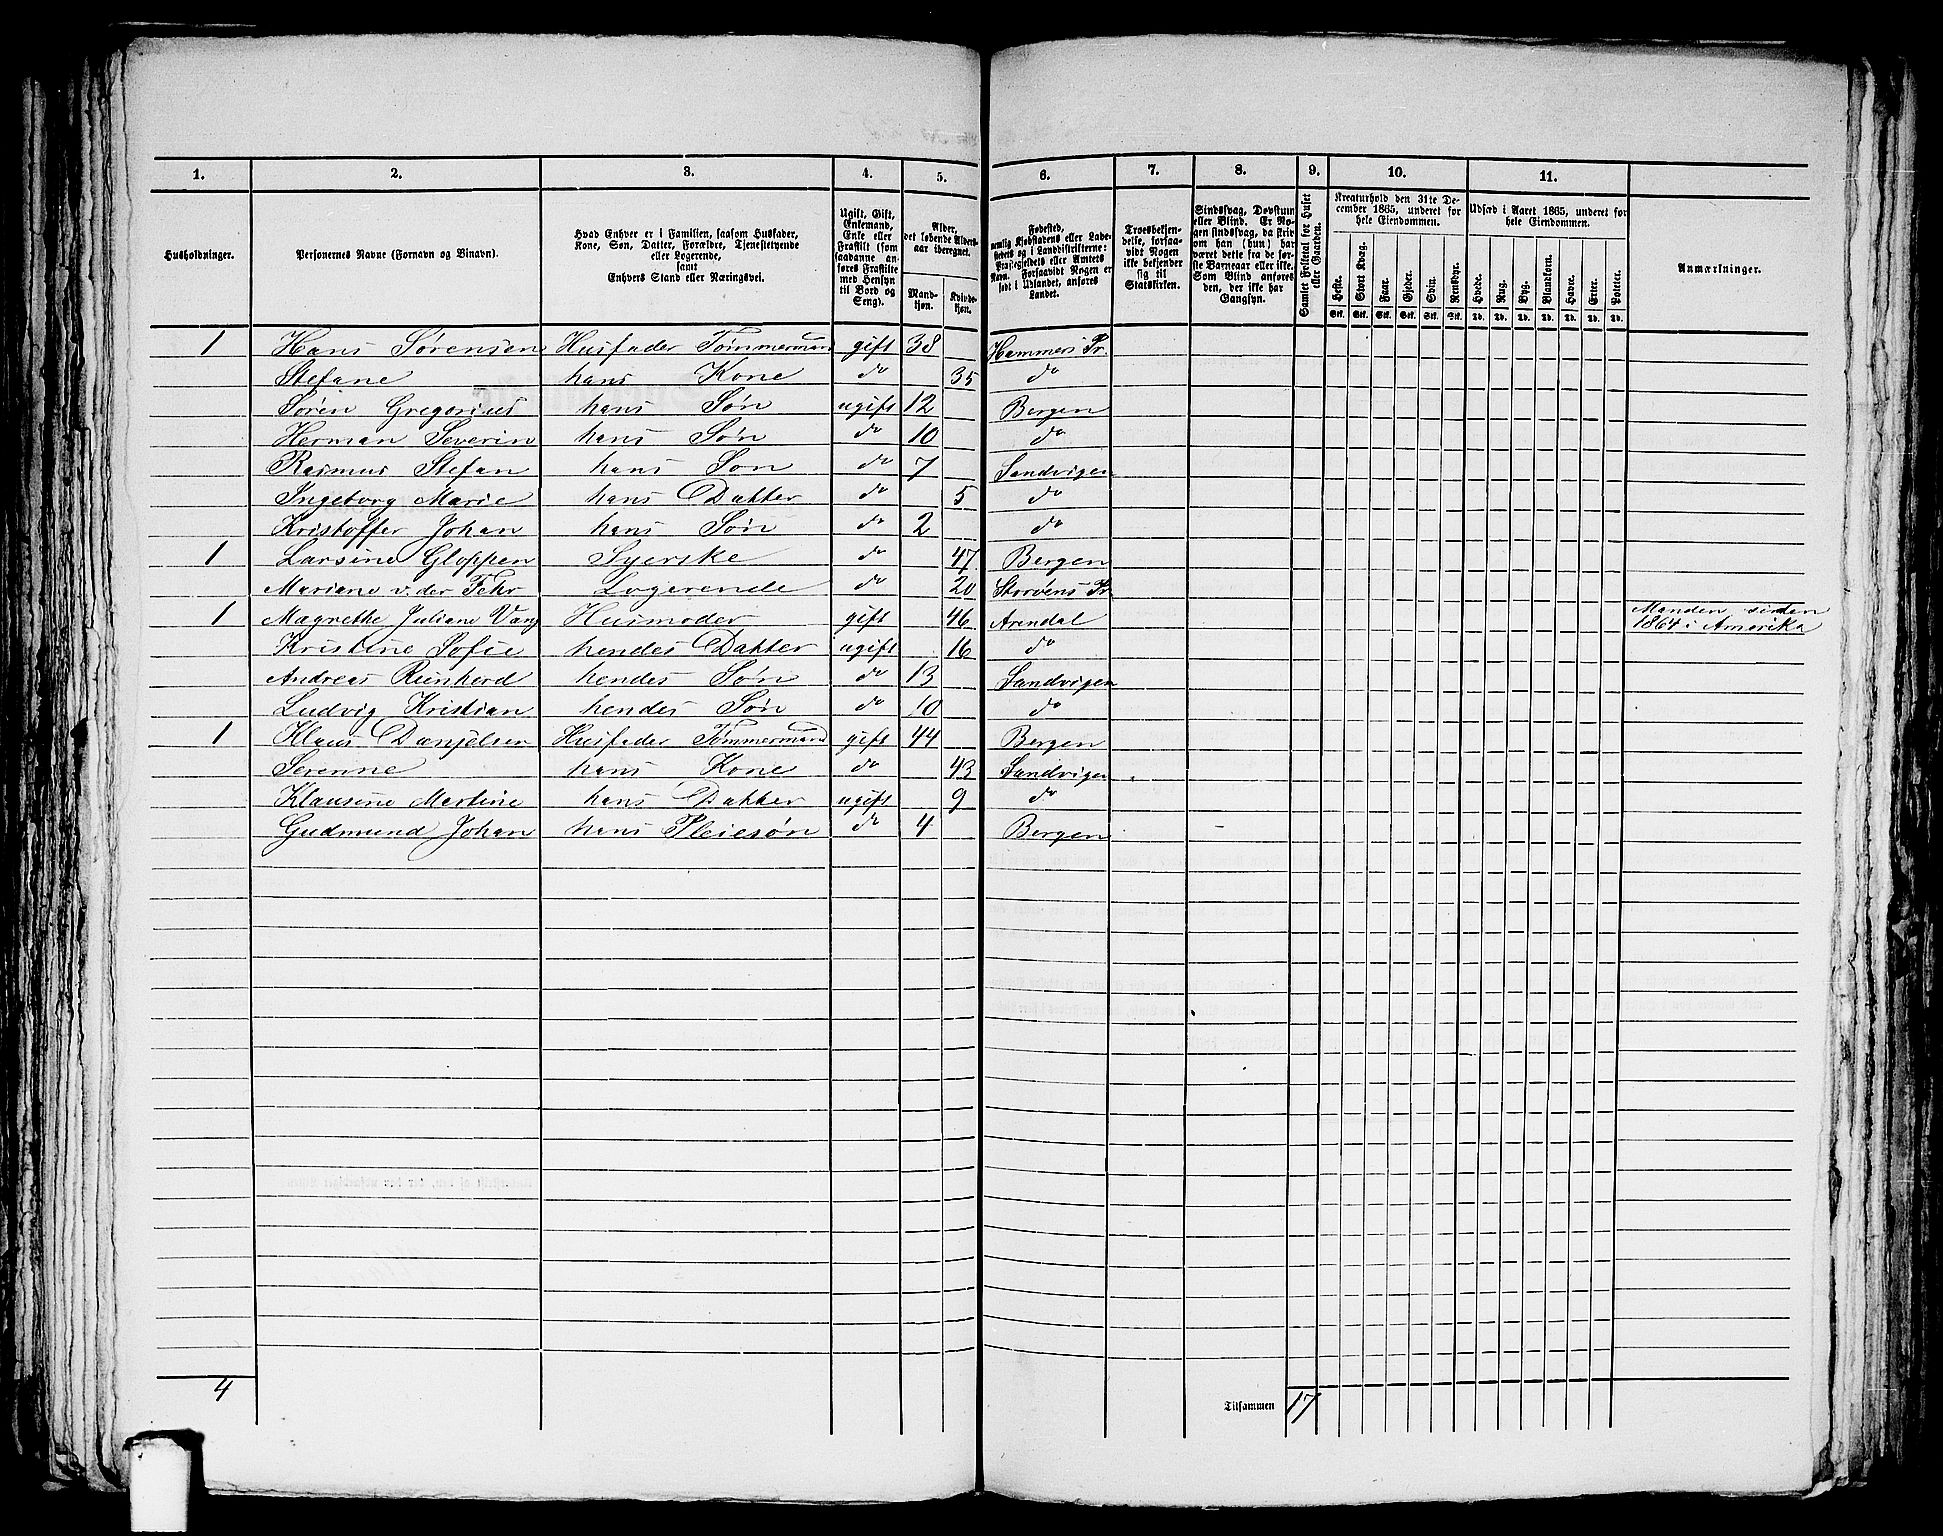 1. 2. 3. 4. 5. 6. 7. 8. 9. 10. 11.
Husholdninger.
Personernes Navne (Fornavn og Binavn).
Hvad Enhver er i Familien, saasom Husfader,
Kone, Søn, Datter, Forældre, Tjenestetyende
eller Logerende,
samt
Enhvers Stand eller Næringsvei.
Ugift, Gift,
Enkemand,
Enke eller
Fraskilt (som
saadanne an-
føres Fraskilte
med Hensyn
til Bord og
Seng).
Alder,
det løbende Alders-
aar iberegnet.
Mand-
kjøn.
Kvinde-
kjøn.
Fødested,
nemlig Kjøbstadens eller Lade-
stedets og i Landdistrikterne:
Præstegjeldets eller Amtets
Navn. Forsaavidt Nogen er
født i Udlandet, anføres
Landet.
Troesbekjen-
delse, forsaa-
vidt Nogen
ikke bekjender
sig til
Statskirken.
Sindssvag, Døvstum
eller Blind. Er No-
gen sindssvag, da skriv
om han (hun) har
været dette fra de før-
ste Barneaar eller ikke.
Som Blind anføres
den, der ikke har
Gangsyn.
Samlet Folketal for Huset
eller Gaarden.
Kreaturhold den 31te De-
cember 1865, underet for
hele Eiendommen.
Heste. Stort Kvæg. Faar. Gjeder. Svin. Rensdyr.
Stk. Stk. Stk. Stk. Stk. Stk.
Udsæd i Aaret 1865, underet for
hele Eiendommen.
Hvede. Rug. Byg. Blandkorn. Havre. Erter. Poteter.
Td. Td. Td. Td. Td. Td. Td.
Anmærkninger.
1 Hans Sørensen Husfader Tømmermand gift 38 Hammers Pr.
Stefane hans Kone do 35 do
Søren Gregorius hans Søn ugift 12 Bergen
Herman Severin hans Søn do 10 do
Rasmus Stefan hans Søn do 7 Sandvigen
Ingeborg Marie hans Datter do 5 do
Kristoffer Johan hans Søn do 2 do
1 Larsine Gloppen Syerske do 47 Bergen
Mariane v. der Fehr Logerende do 20 Storøens Pr
1 Magrethe Juliane Vang Husmoder gift 46 Arendal Manden siden
1864 i Amerika
Kristine Sofie hendes Datter ugift 16 do
Andreas Reinhord hendes Søn do 13 Sandvigen
Ludvig Kristian hendes Søn do 10 do
1 Klaus Danjelsen Husfader Tømmermand gift 44 Bergen
Serenne hans Kone do 43 Sandvigen
Klausine Martine hans Datter ugift 9 do
Gudmund Johan hans Pleiesøn do 4 Bergen
4 Tilsammen 17